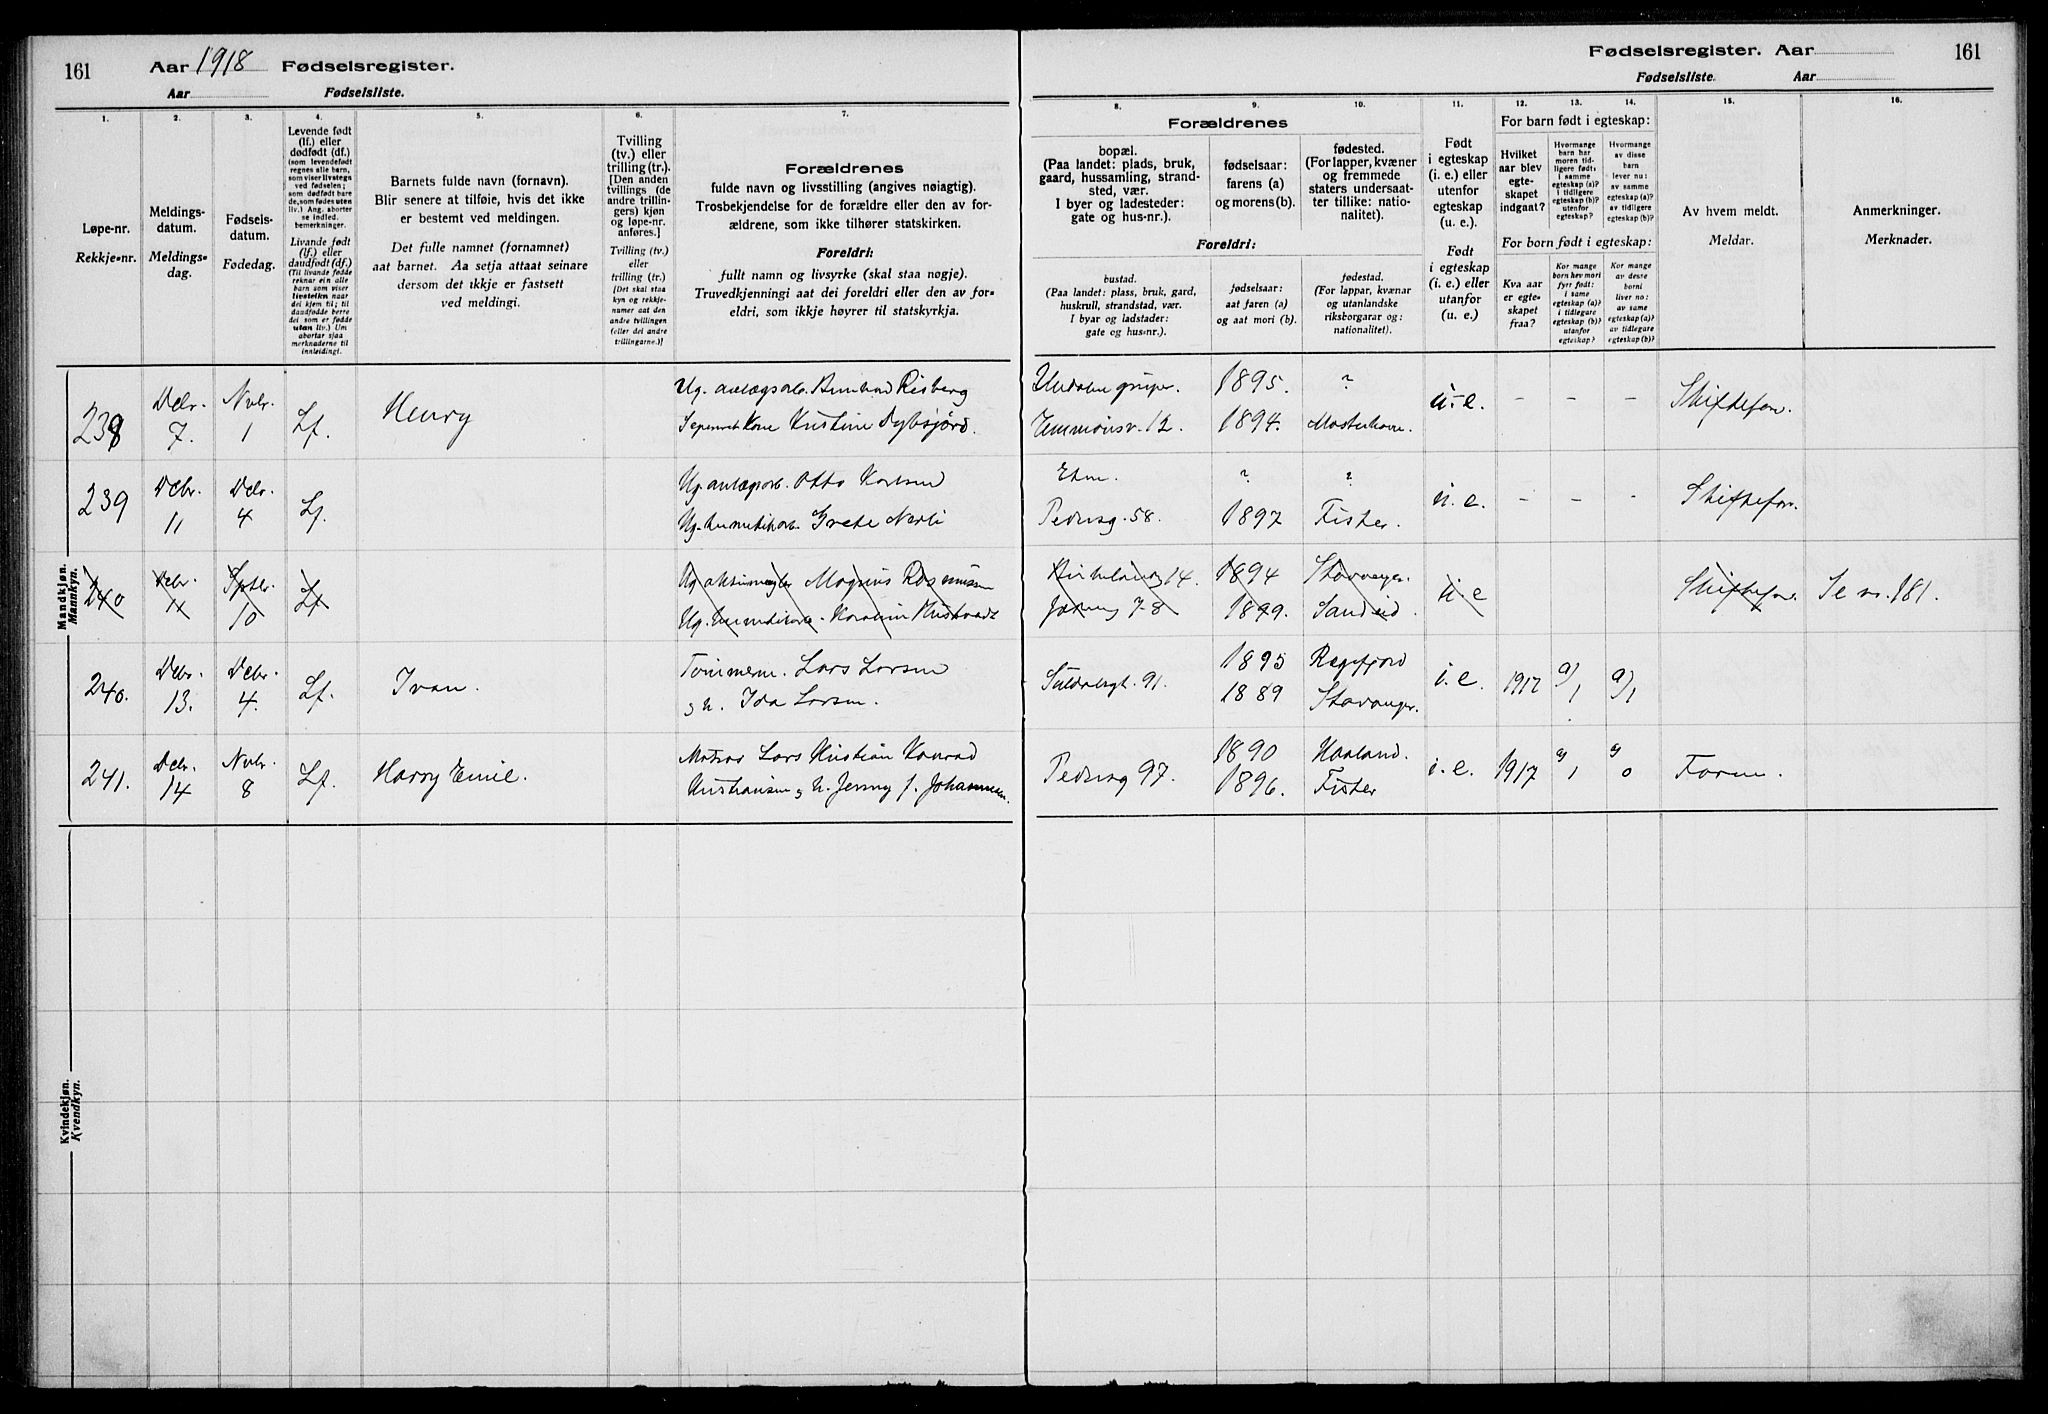 161
Aar 1918 Fødselsregister.
Aar Fødselsliste.
1.
2.
3.
4.
5.
6.
7.
Løpe-nr.
Rekkje-nr.
Meldings-
datum.
Meldings-
dag.
Fødsels-
datum.
Fødedag.
Levende født
(lf.) eller
dødfødt (df.)
(som levendefødt
regnes alle barn,
som viser livstegn
ved fødselen;
som dødfødt bare
de, som fødes uten
liv.) Ang. aborter
se indled.
bemerkninger.
Livande født
(lf.) eller
daudfødt (df.)
(Til livande fødde
reknar ein alle
barn som viser
livsteikn naar
dei kjem til; til
daudfødde berre
dei som er fødde
utan liv.) Um
abortar sjaa
merknaderne til
innleidingi.
Barnets fulde navn (fornavn).
Blir senere at tilføie, hvis det ikke
er bestemt ved meldingen.
Det fulle namnet (fornamnet)
aat barnet. Aa setja attaat seinare
dersom det ikkje er fastsett
ved meldingi.
Tvilling
(tv.) eller
trilling (tr.).
[Den anden
tvillings (de
andre trillin-
gers) kjøn
og løpe-nr.
anføres.]
Tvilling (tv.)
eller
trilling (tr.)
[Det skal staa
kyn og rekkje-
numer aat den
andre tvillingen
(eller dei andre
trillingarne.)]
Forældrenes
fulde navn og livsstilling (angives nøiagtig).
Trosbekjendelse for de forældre eller den av for-
ældrene, som ikke tilhører statskirken.
Foreldri:
fullt namn og livsyrke (skal staa nøgje).
Truvedkjenningi aat dei foreldri eller den av for-
eldri, som ikkje høyrer til statskyrkja.
Mandkjøn.
Mannkyn.
238
Dcbr.
7.
Nvbr.
1
Lf.
Henry
Ug. anlægsarb. Risberg
Kone Kristine Dybsjord.
239
Dcbr.
11
Dcbr.
4
Lf.
Ug. anlægsarb. Otto Karlsen
Ug. hermetikarb. Grete Nerli
240
Dcbr.
11
Sptbr.
10
Lf
Ug. Magnus Rasmussen
Ug. hermetikarb.
240.
Dcbr.
13.
Dcbr.
4.
Lf.
Ivan.
Tømmerm. Lars Larsen
og h. Ida Larsen.
241.
Dcbr.
14
Nvbr.
8
Lf.
Harry Emil.
Matros Lars Kristian Konrad
Kristiansen og h. Jenny f. Johannesen.
Kvindekjøn.
Kvendkyn.
Fødselsregister. Aar
161
Fødselsliste. Aar
8.
9.
10.
11.
12.
13.
14.
15.
16.
Forældrenes
bopæl.
(Paa landet: plads, bruk,
gaard, hussamling, strand-
sted, vær.
I byer og ladesteder:
gate og hus-nr.).
fødselsaar:
farens (a)
og morens (b).
fødested.
(For lapper, kvæner
og fremmede
staters undersaat-
ter tillike: natio-
nalitet).
Foreldri:
bustad.
(Paa landet: plass, bruk, gard,
huskrull, strandstad, vær.
I byar og ladstader:
gate og hus-nr.).
fødselsaar:
aat faren (a)
og aat mori (b).
fødestad.
(For lappar, kvænar
og utanlandske
riksborgarar og:
nationalitet).
Født
i egteskap
(i. e.) eller
utenfor
egteskap
(u. e.).
Født
i egteskap
(i. e.) eller
utanfor
(u. e.)
For barn født i egteskap:
Hvilket
aar blev
egte-
skapet
indgaat?
Hvormange
barn har
moren tid-
ligere født:
i samme
egteskap (a)?
i tidligere
egteskap (b)?
utenfor
egteskap?
Hvormange
av disse
barn
lever nu:
av samme
egteskap (a)?
av tidligere
egteskap (b)?
For born født i egteskap:
Kva aar
er egte-
skapet
fraa?
Kor mange
born hev mori
fyrr født:
i same
egteskap (a)?
i tidlegare
egteskap (b)?
utanfor
egteskap?
Kor mange
av desse
borni
liver no:
av same
egteskap (a)?
av tidlegare
egteskap (b)?
Av hvem meldt.
Meldar.
Anmerkninger.
Merknader.
1895.
?
u. e.
-
-
-
Skiftefor.
12.
1894.
Mosterhavn.
?
?
u. e.
-
-
-
Skiftefor.
Pedersg. 58.
1897
Fister.
14.
1894
Stavanger.
u. e
Skiftefor.
Se nr. 181.
78
1899.
Sandeid.
1895
Rægefjord
Suldalsgt. 91.
i. e.
1917
a/1
a/1
1889
Stavanger.
1890
Haaland.
Pedersg 97.
i. e.
1917
a/1
a/0
Faren.
1896.
Fister